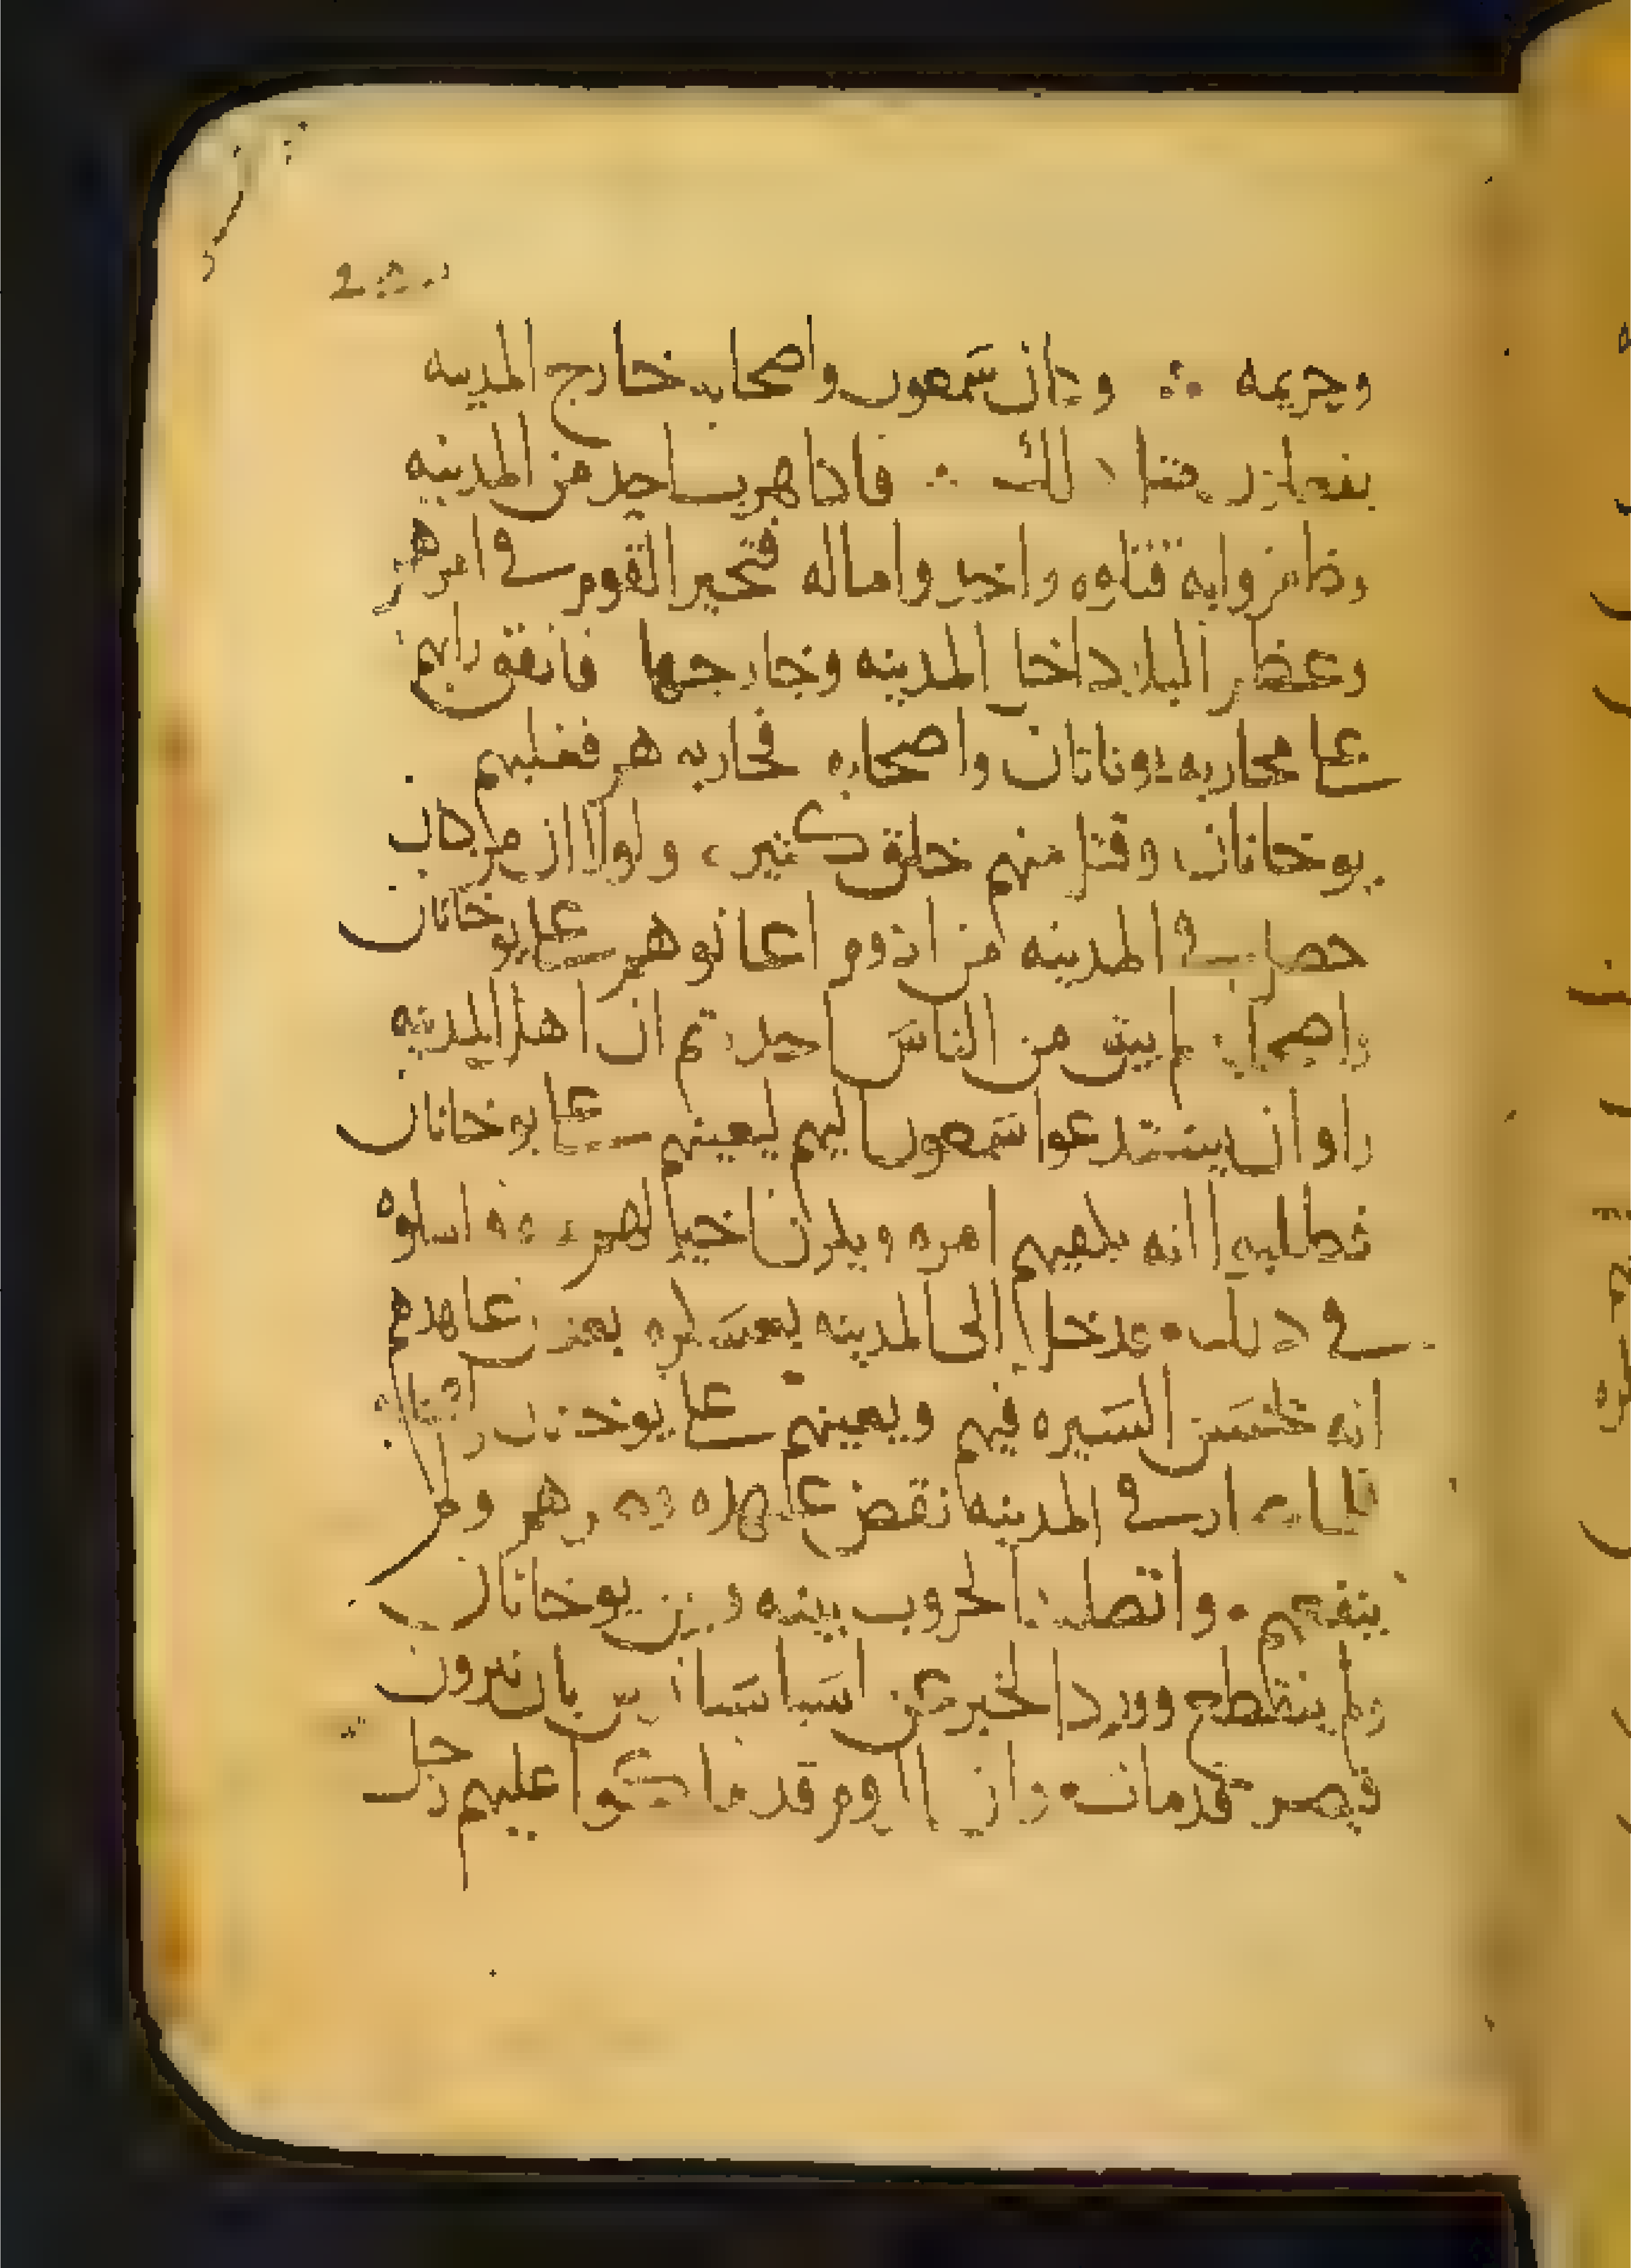 وحريمه ∴ وكان سمعون واصحابه خارج المدينه
يفعلون متل دلك ∴ فادا هرب احد من المدينه
وظفروا به قتلوه واخدوا ماله فتحير القوم في امرهم
وعظم البلا داخل المدينه وخارجها فاتفق رايهم
على محاربه يوناتان واصحابه فحاربوهم فغلبهم
يوخانان وقتل منهم خلق كتير، ولولا ان من كان
حصل في المدينه من ادوم اعانوهم على يوخانان
واصحابه لم يبق من الناس احد، تم ان اهل المدينه
راوا ان يستدعوا سمعون اليهم ليعينهم على يوخانان
فطلبه انه يكفيهم امره ويكون اخير لهم، فراسلوه
في دلك • فدخل الى المدينه بعسكره بعد ان عاهدهم
انه يحسن السيره فيهم ويعينهم على يوخانان
فلما صار في المدينه نقض عهده وغدرهم ولم
ينفعهم • واتصلت الحروب بينه وبين يوخانان
ولم ينقطع وورد الخبر عن اسباسيانوس بان نيرون
قيصر قد مات • وان الروم قد ملكوا عليهم رجل